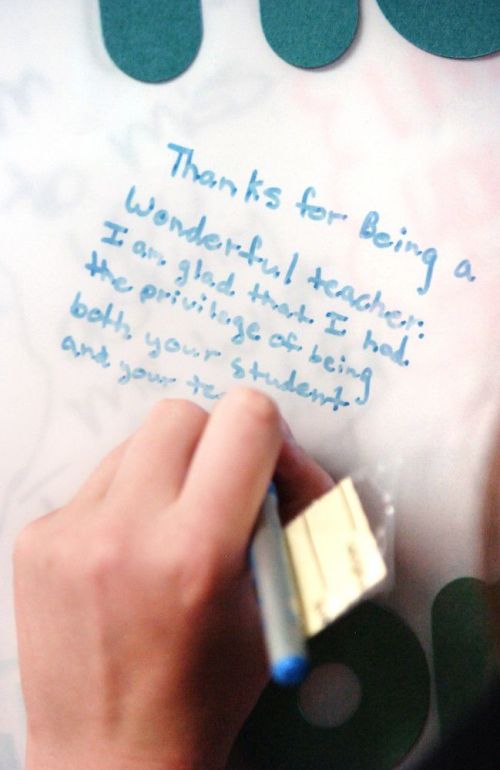 Thanks for Being a
Wonderful teacher:
I am glad that I had
the privilege of being
both your student
and your te